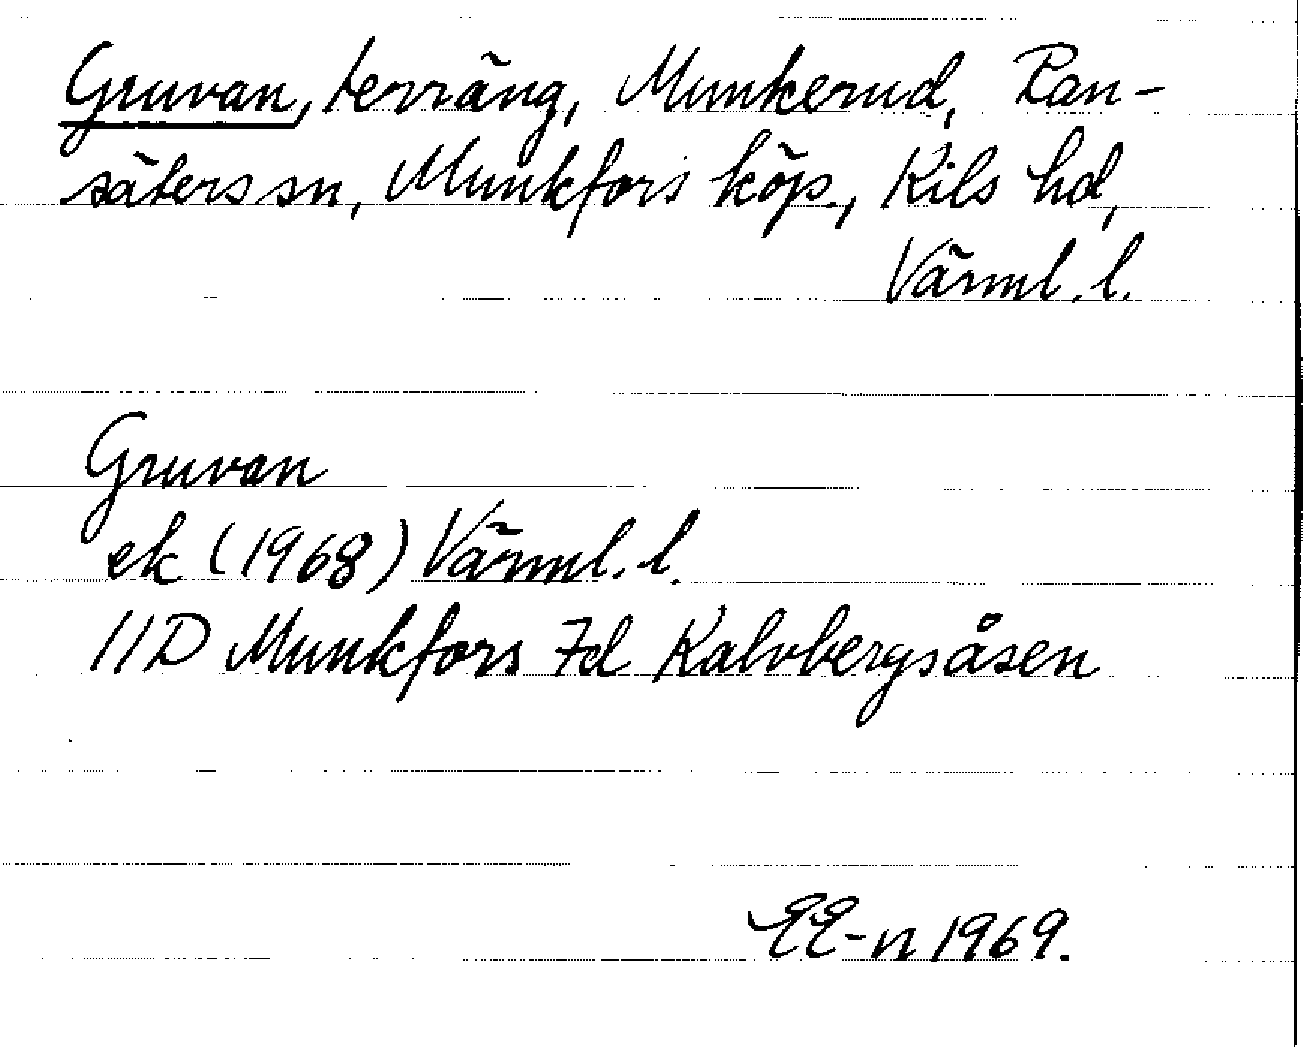 Gruvan, terräng, Munkerud, Ran-
säters sn, Munkfors köp., Kils hd,
Värml. l.
Gruvan
ek (1968) Värml. l.
11D Munkfors 7d Kalvbergsåsen
EE-n 1969.